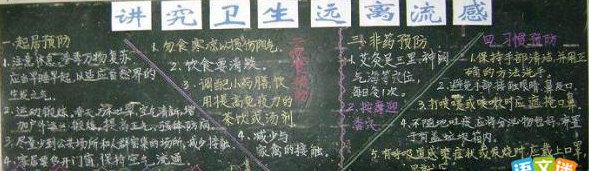 讲究卫生远离流感
一.起居预防
1.注意休息,春季万物复苏
应当早睡早起,以适应自然界的
生发之气.
2.运动锻炼,
3.尽量少到公共场所和人群密集的场所,减少接触.
4.家居要多开门窗,保持空气流通
1.勿食寒凉以损伤阳气.
2.饮食要清淡.
3.调配小药膳,饮
用提高免疫力的
茶饮或汤剂
4.减少与
家禽的接触.
三.非药预防
1.艾灸足三里,神阙
与涌泉穴位,
每日灸1次.
2.按摩迎
香穴.
四.习惯预防
1.保持手部清洁,并用正
确的方法洗手.
2.避免手部接触眼睛、鼻及口.
3.打喷嚏或咳嗽时应遮掩口鼻.
4.不随地吐痰,应将分泌物包好,弃置
于有盖垃圾箱内.
5.有呼吸道感染症状或发烧时,应戴上口罩
语文迷